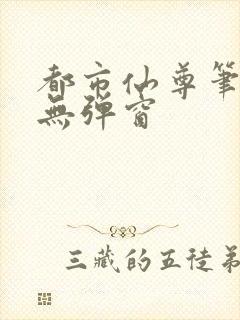 都市仙尊筆
無彈窗
三藏的五徒弟